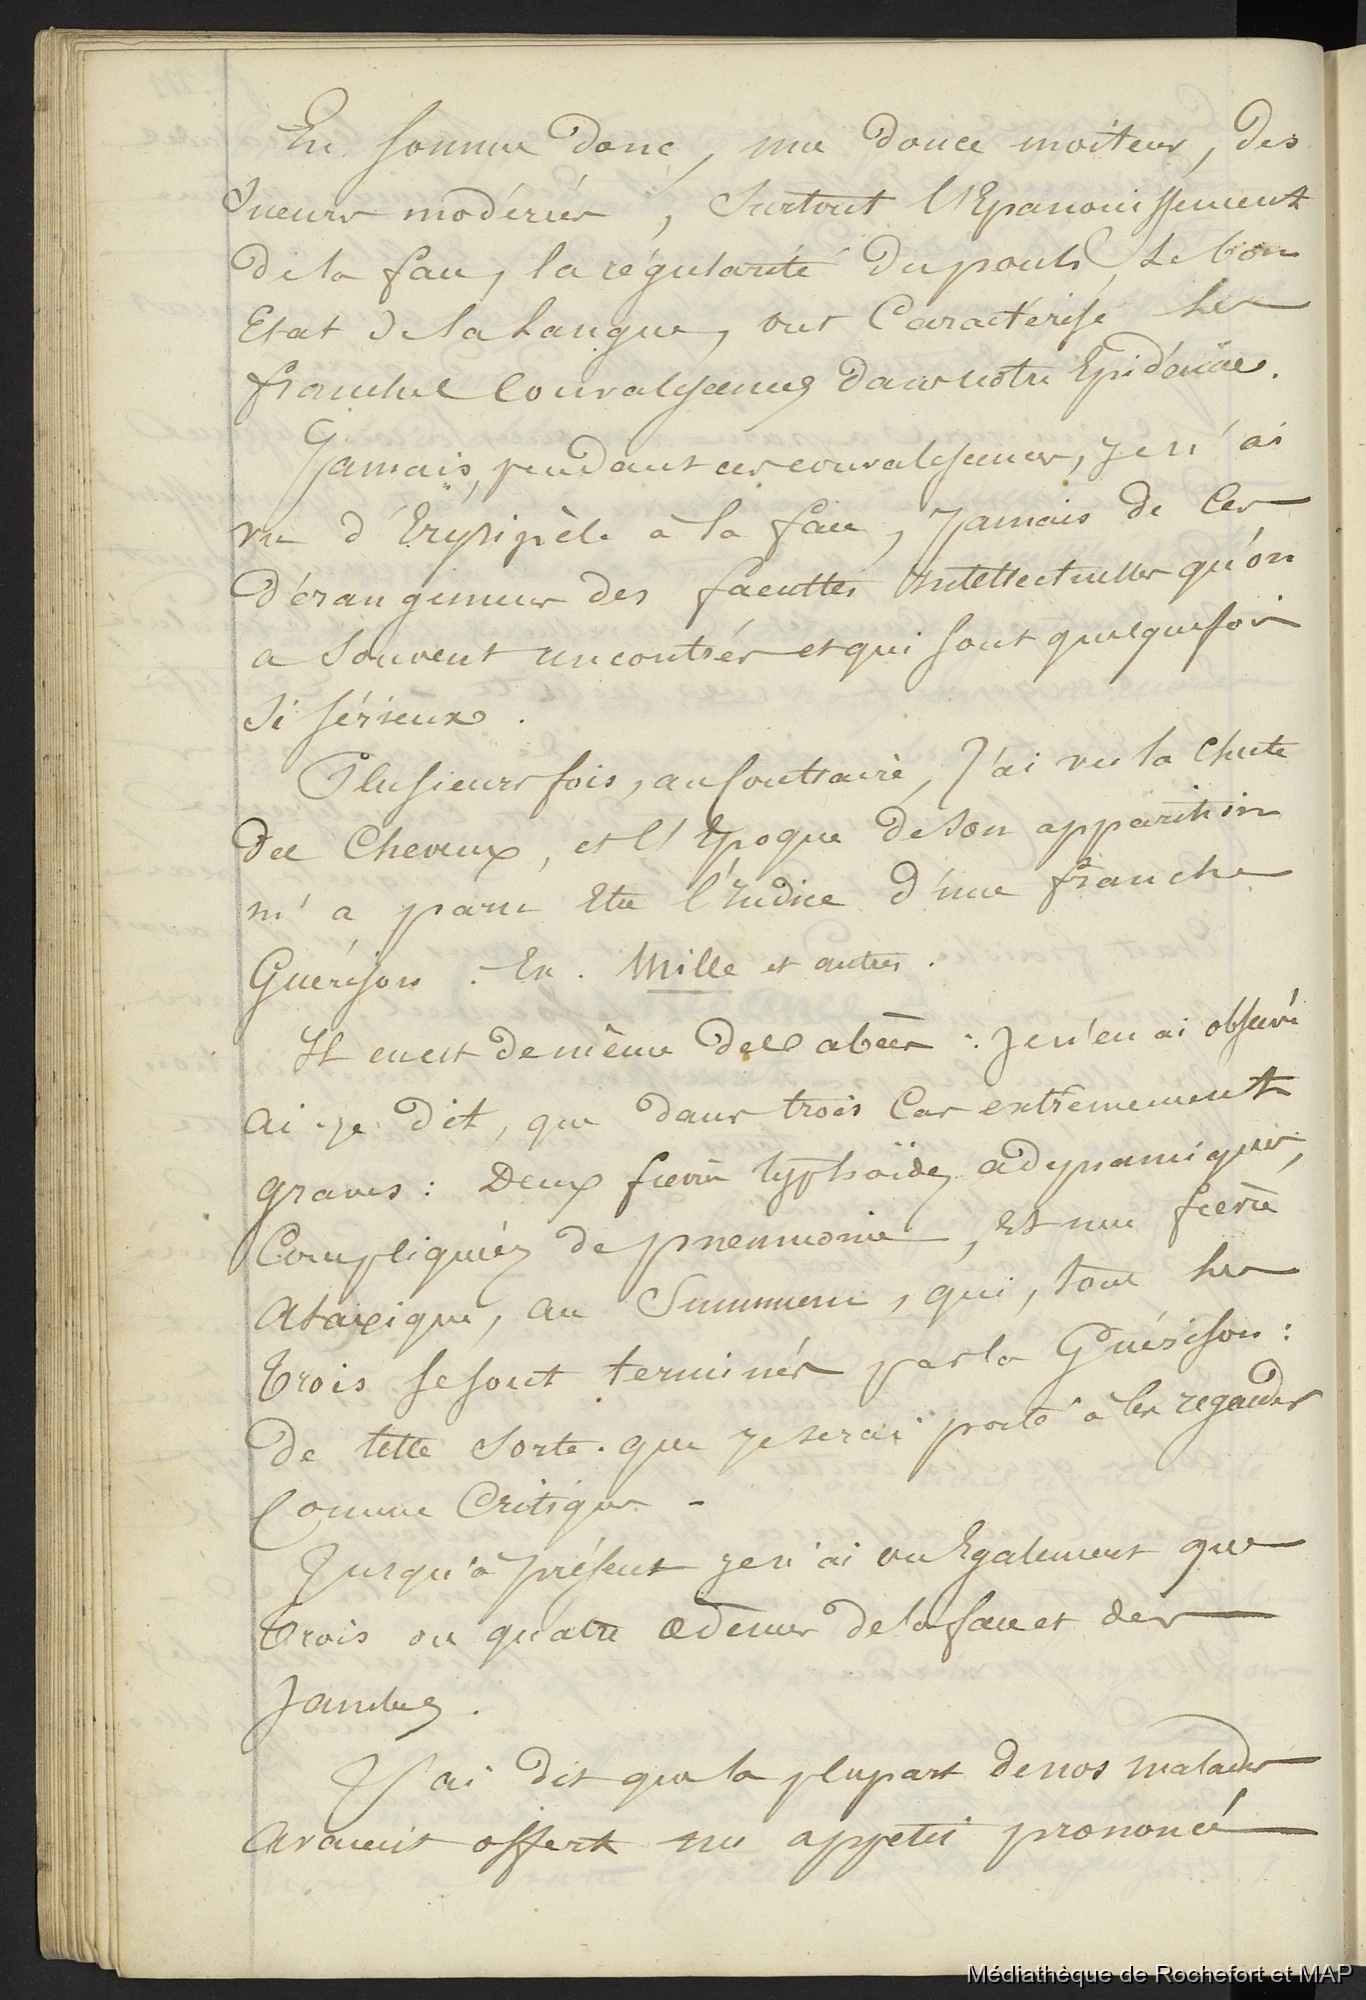 En somme donc, une douce moiteur, des
Sueurs modérées, Surtout l'Epanouissement
de la face, la régularité du pouls, le bon
Etat de la Langue, ont Caractérisé les
franches Convalescences dans notre Epidémie.
Jamais, pendant ces convalescences, je n'ai
vu d'Erysipèle à la face, Jamais de Ces
dérangemens des facultés Intellectuelles qu'on
a Souvent rencontrés et qui sont quelquefois
Si sérieux.
Plusieurs fois, au Contraire, J'ai vu la Chute
des Cheveux, et l'Epoque de son apparition
m'a paru Etre l'Indice d'une franche
Guérison. Ex. Mille et autres.
Il en est de même des abcès : Je n'en ai observé
ai-je dit, que dans trois Cas extrêmement
graves : Deux fièvres typhoïdes adynamiques,
Compliquées de pneumonie, Et une fièvre
Ataxique, au Summum, qui, tous les
trois se sont terminés par la Guérison :
De telle Sorte que je serai porté à les regarder
Comme Critiques -
Jusqu'à présent je n'ai vu Egalement que
trois ou quatre œdèmes de la face et des
Jambes.
J'ai dit que la plupart de nos malades
Avaient offert un appetit prononcé
Médiathèque de Rochefort et MAP